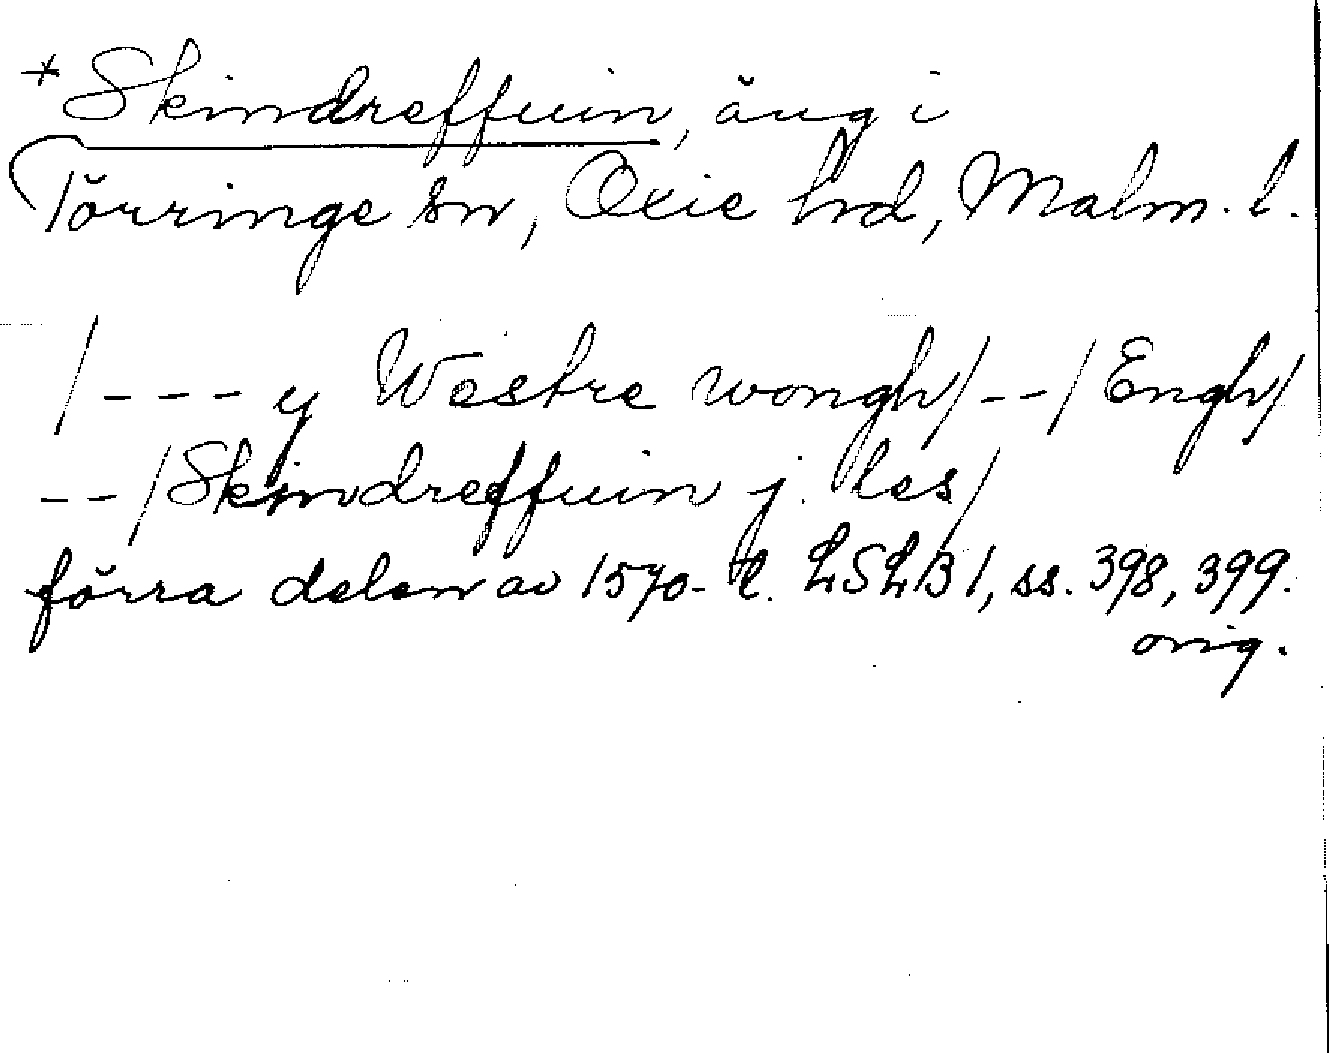 + Skindreffuin, äng i
Törringe sn, Oxie hd, Malm. l.
/--- y Westre wongh/--/Engh/
--/Skindreffuin j. les/
förra delen av 1570-t. LSLB 1, ss. 398, 399.
orig.